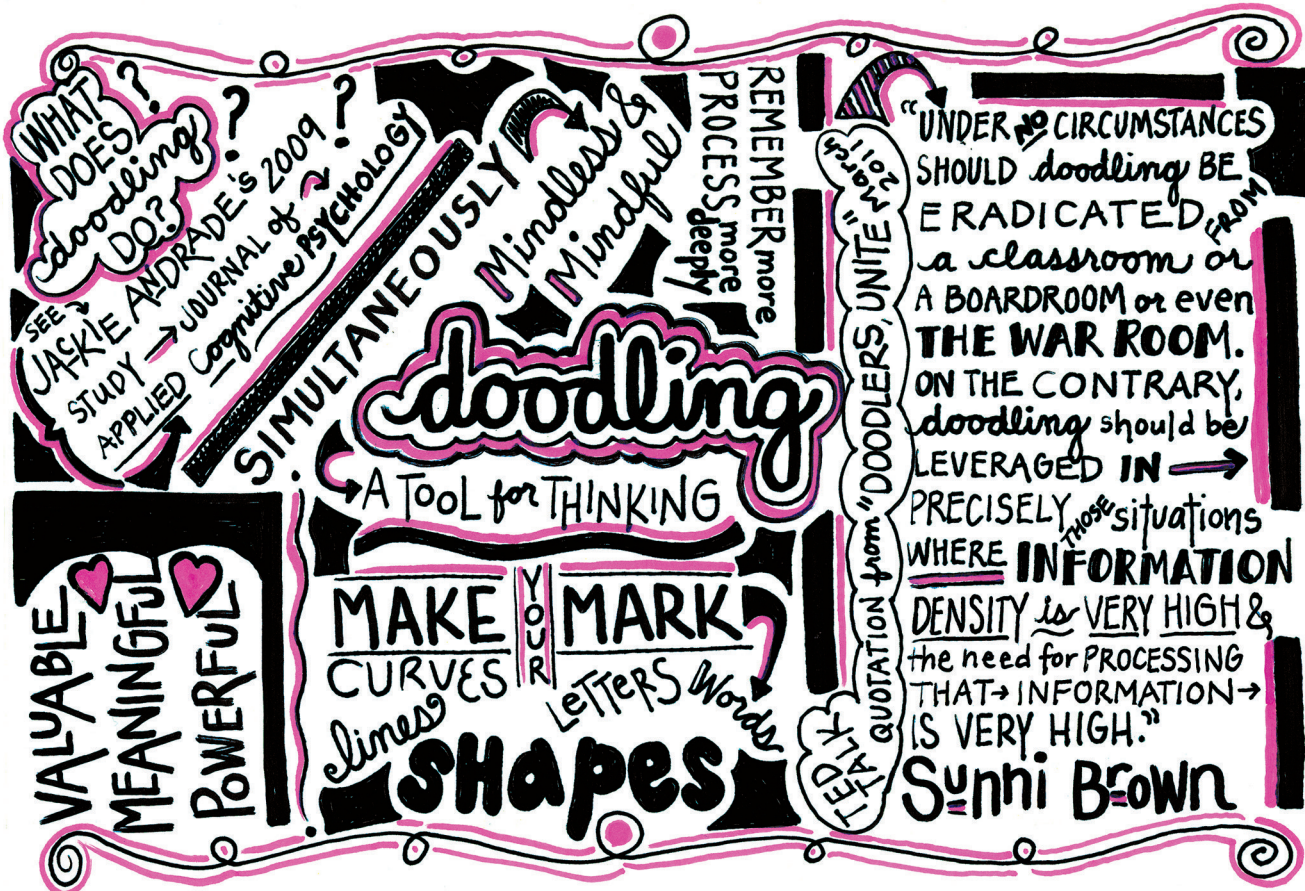 WHAT
DOES
doodling
DO?
???
SEE
JACKIE ANDRADE'S 2009
STUDY → JOURNAL of
APPLIED Cognitive PSYCHOLOGY
SIMULTANEOUSLY
Mindless &
Mindful
REMEMBER more
PROCESS more
deeply
doodling
A TOOL for THINKING
MAKE YOUR MARK
CURVES
lines
LETTERS Words
SHAPES
VALUABLE
MEANINGFUL
POWERFUL
TED TALK
QUOTATION from "DOODLERS, UNITE" March 2011
"UNDER NO CIRCUMSTANCES
SHOULD doodling BE
ERADICATED FROM
a classroom or
A BOARDROOM or even
THE WAR ROOM.
ON THE CONTRARY,
doodling should be
LEVERAGED IN →
PRECISELY THOSE situations
WHERE INFORMATION
DENSITY is VERY HIGH &
the need for PROCESSING
THAT → INFORMATION →
IS VERY HIGH."
Sunni Brown